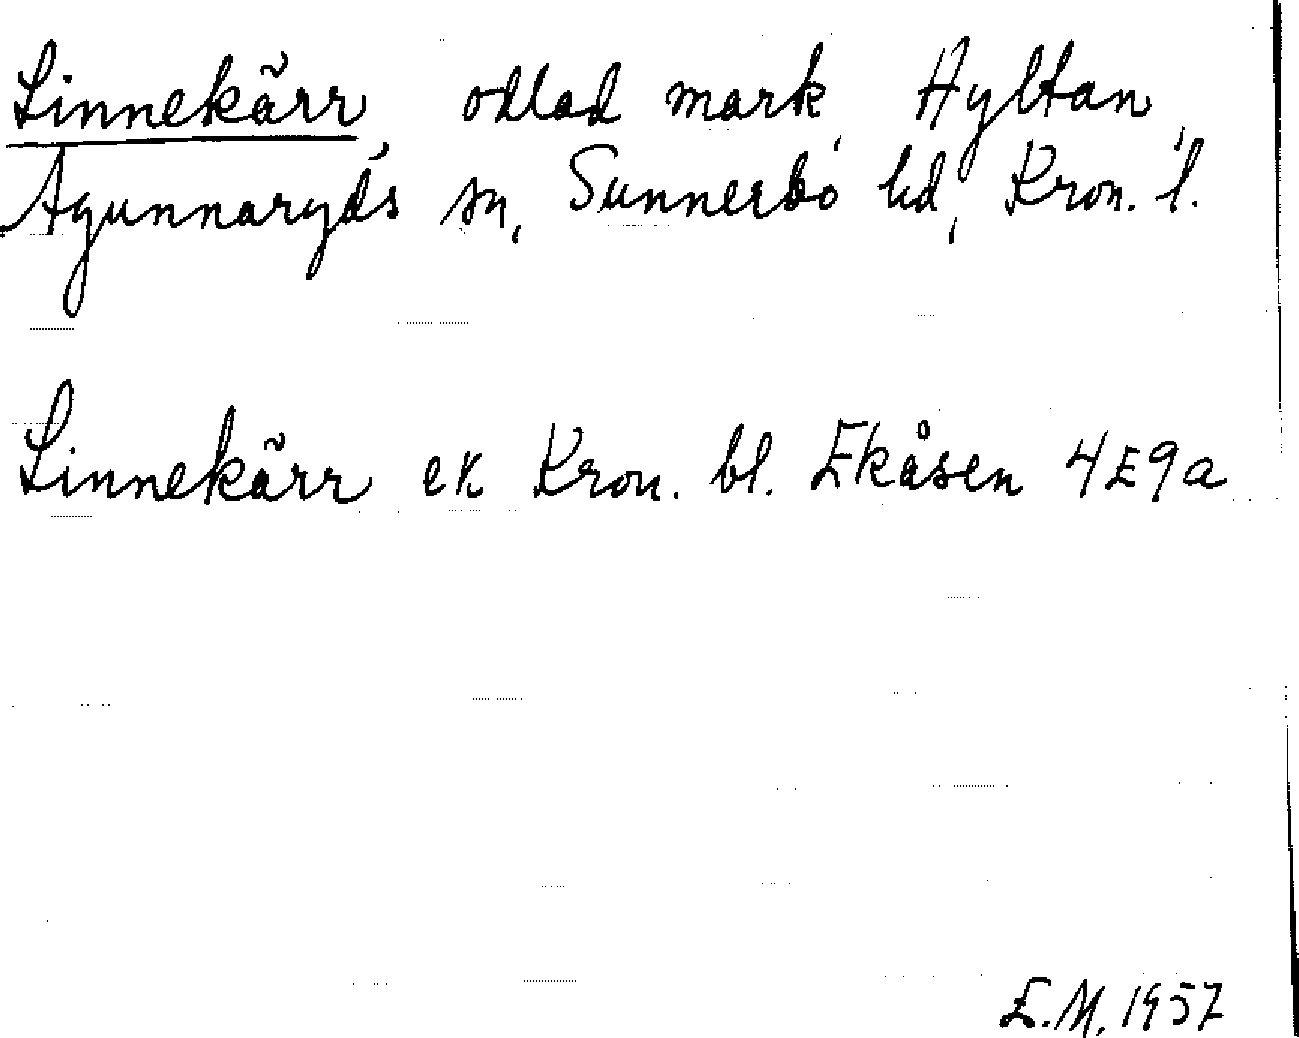 Linnekärr, odlad mark, Hyltan,
Agunnaryds sn, Sunnerbo hd, Kron. l.
Linnekärr ek Kron. bl. Ekåsen 4E9a
E.M. 1957